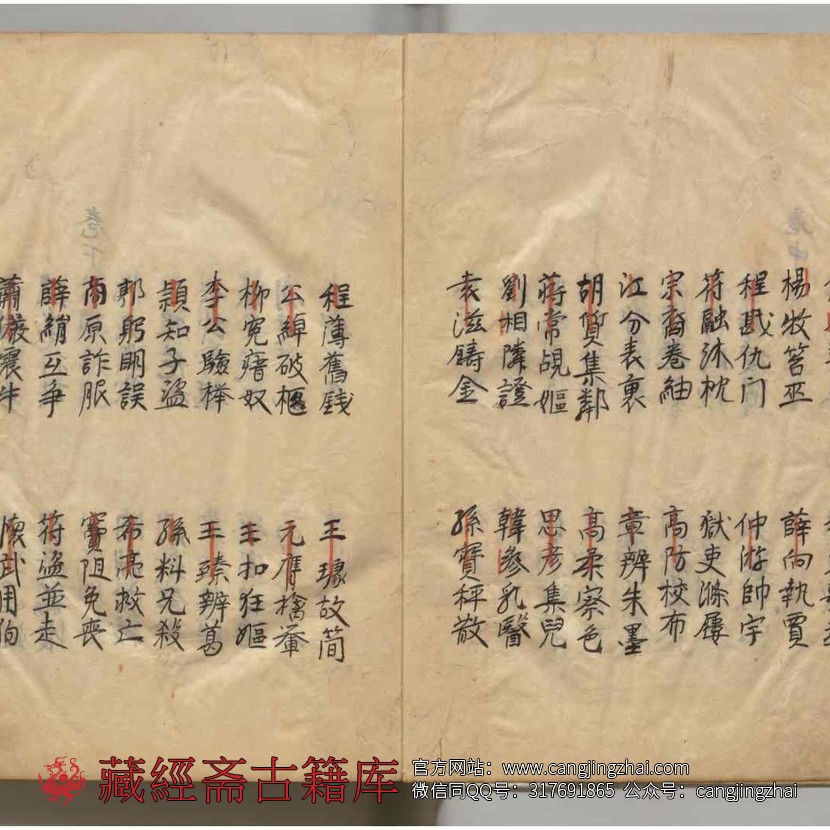 楊牧笞巫
薛向執賈
程戡仇门
仲游帥宇
符融沐枕
獄吏滌屨
宗裔卷紬
高防校布
江分表裏
章辨朱墨
胡質集鄰
高柔察色
蔣常覘嫗
思彥集兒
劉相隣證
韓參乳醫
袁滋鑄金
孫寶秤散
卷下
程薄舊錢
王璩故简
公綽破柩
元膺擒轝
柳冤瘖奴
王扣狂嫗
李公驗榉
王臻辨葛
潁知子盜
孫料兄殺
郭躬明誤
希亮救亡
商原詐服
竇阻免喪
薛絹互爭
符盜並走
蕭儼震牛
懷武用狗
藏經斋古籍库
官方网站：www.cangjingzhai.com
微信同QQ号：317691865 公众号：cangjingzhai